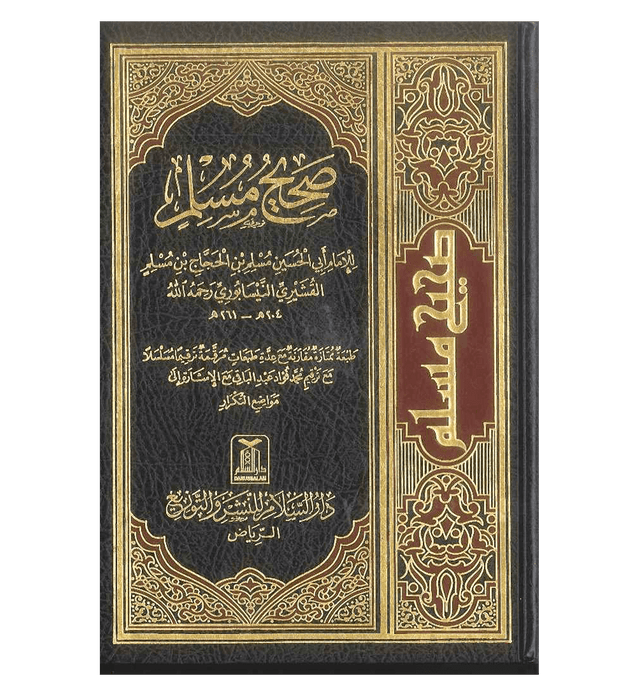 صَحِيحُ مُسْلِمٍ
لِلْإِمَامِ أَبِي الْحُسَيْنِ مُسْلِمِ بْنِ الْحَجَّاجِ بْنِ مُسْلِمٍ
الْقُشَيْرِيِّ النَّيْسَابُورِيِّ رَحِمَهُ اللهُ
٢٠٤هـ - ٢٦١هـ
طَبْعَةٌ مُمْتَازَةٌ مُقَارَنَةٌ مَعَ عِدَّةِ طَبَعَاتٍ مُرَقَّمَةٌ تَرْقِيمًا مُسَلْسَلًا
مَعَ تَرْقِيمِ مُحَمَّد فُؤَاد عَبْدِ الْبَاقِي مَعَ الْإِشَارَةِ إِلَى
مَوَاضِعِ التَّكْرَارِ
دار السلام
DARUSSALAM
دَارُ السَّلَامِ لِلنَّشْرِ وَالتَّوْزِيعِ
الرِّيَاضُ
صحيح مسلم